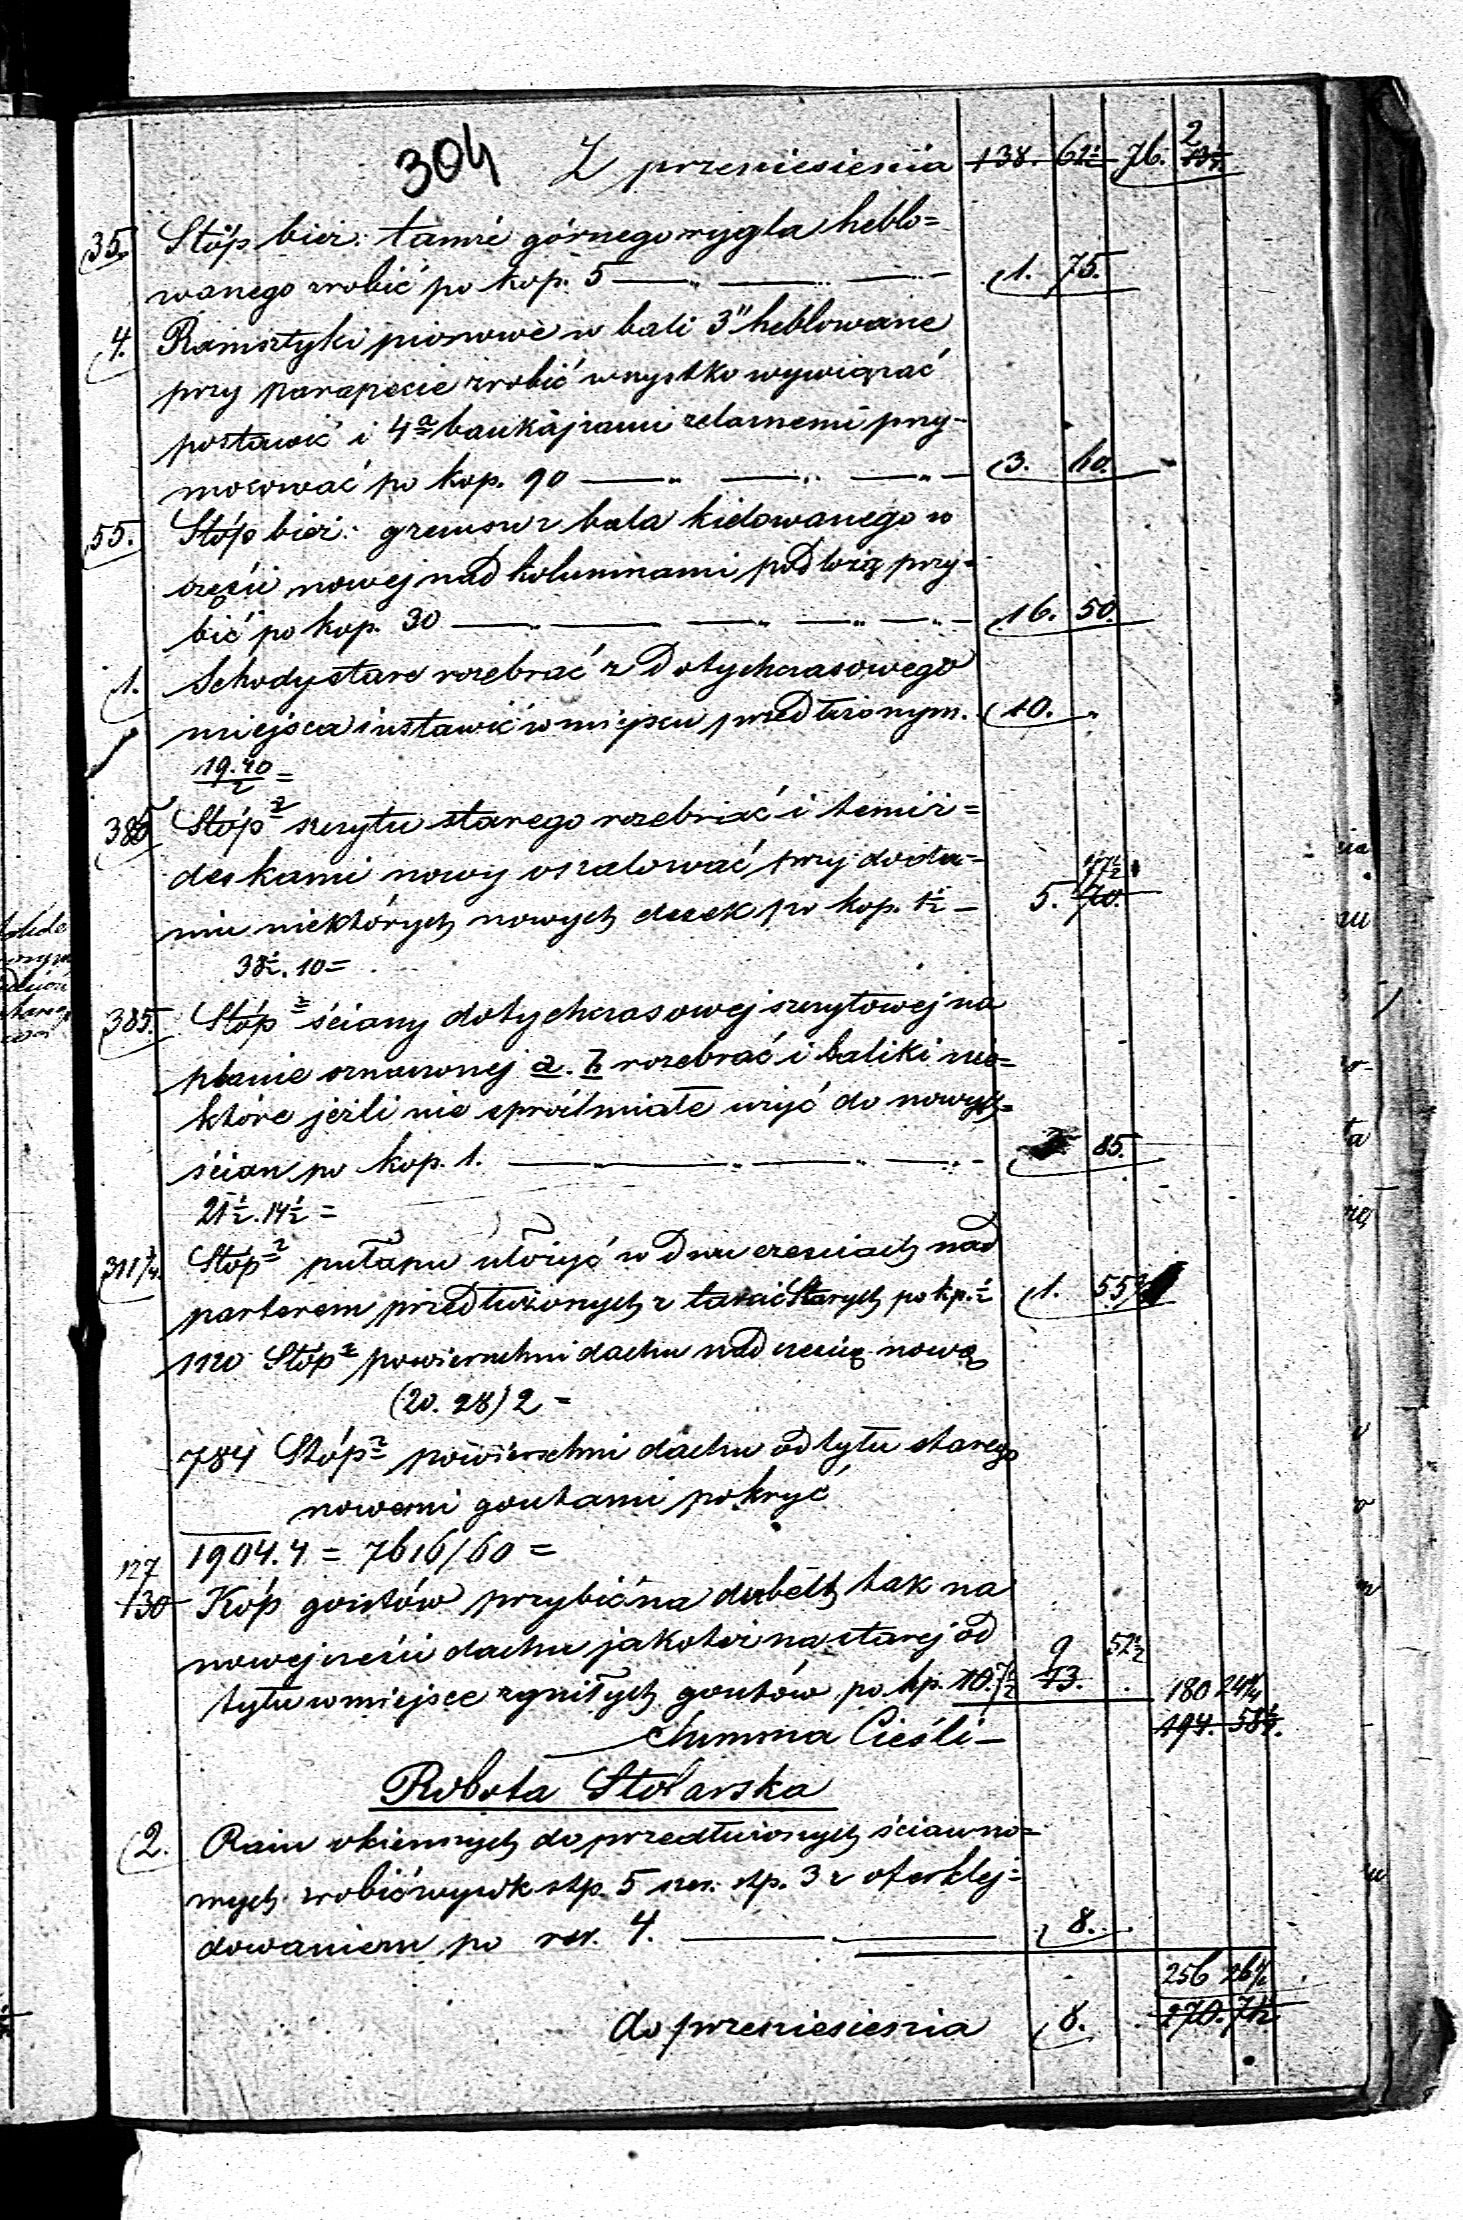 304 Z przeniesienia 138. 61½ 76. 2
35. Stóp bież: tamże górnego rygla heblo=
wanego zrobić po kop. 5 — 1. 75.
4. Ramsztyki pionowe w bali 3" heblowane
przy parapecie zrobić wszystko wywiązać
postawić i 4 bankajzami żelaznemi przy-
mocować po kop. 90 — 3. 60.
55. Stóp bież: gzemsu z bala kielowanego w
części nowej nad kolumnami pod wią przy-
bić po kop. 30 — 16. 50.
1. Schody stare rozebrać z dotychczasowego
miejsca i ustawić w miejscu przedłużonym. 10. "
19.40/2 =
385 Stóp² szczytu starego rozebrać i temiż=
deskami nowy oszalować przy doda-
niu niektórych nowych desek po kop. 1½ — 5. 77½ 70.
38½.10=
385. Stóp² ściany dotychczasowej szczytowej na
planie oznaczonej a. b rozebrać i baliki nie=
które jeżli nie spróchniałe użyć do nowych=
ścian po kop. 1. — 85.
21½.14½ =
311¾. Stóp² pułapu ułożyć w dwu częściach nad
parterem przedłużonych z tarcic starych po kp. ½ 1. 55¾
1120 Stóp² powierzchni dachu nad częścią nową
(20. 28) 2 =
784 Stóp² powierzchni dachu od tyłu starego
nowemi gontami pokryć
1904.4 = 7616/60 =
127
130 Kóp gontów przybić na dubelt tak na
nowej części dachu jakoteż na starej od 9 52½
tyłu w miejsce zgniłych gontów po kp. 10. 7½ 13. . 180 24¼
Summa Cieśli — 194. 58½.
Robota Stolarska
2. Ram okiennych do przedłużonych ścian no=
wych zrobić wysok stp. 5 szer. stp. 3 z oferklej=
dowaniem po rsr. 4. — 8.
256 26½
do przeniesienia 8. 270. 71½